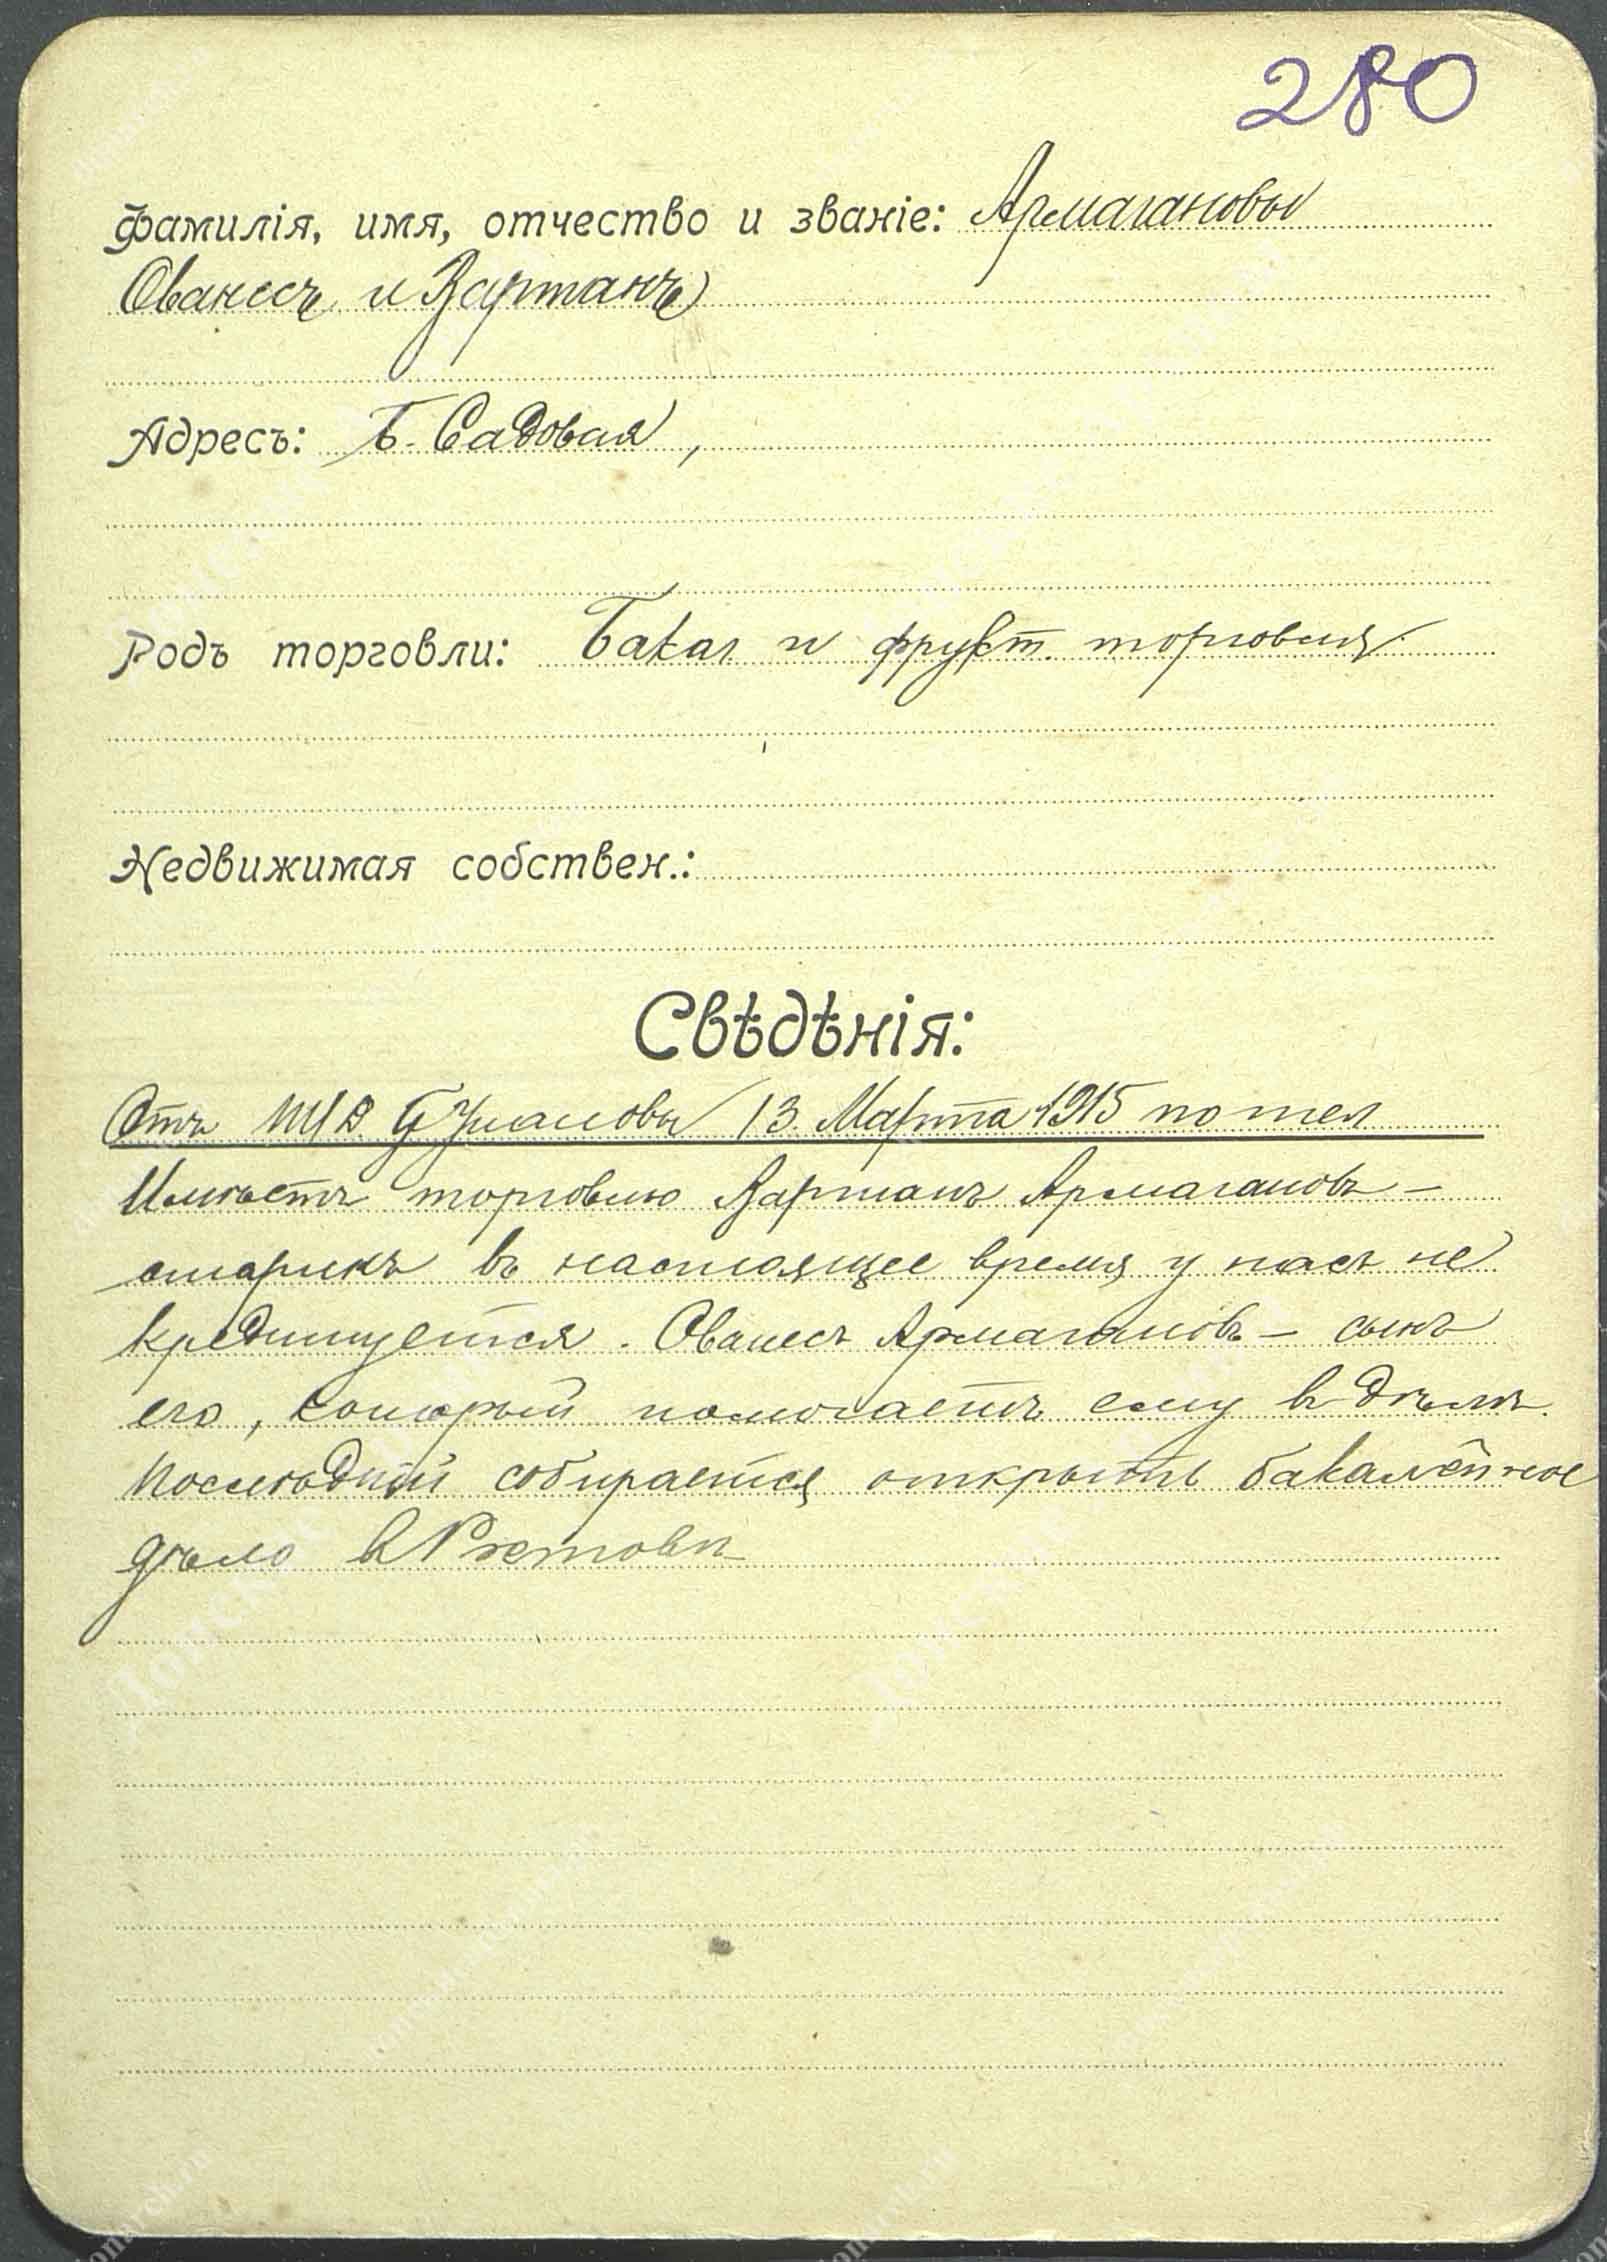 280
Фамилія, имя, отчество и званіе: Армагановы
Ованесъ и Вартанъ
Адресъ: Б. Садовая,
Родъ торговли: Бакал и фрукт. торговля
Недвижимая собствен.:
Свѣдѣнія:
Отъ 13 Марта 1915 по тел
Имѣетъ торговлю Вартанъ Армагановъ –
старикъ въ настоящее время у насъ не
кредитуется. Ованесъ Армагановъ – сынъ
его, который помогаетъ ему в дѣлѣ.
Послѣдній собирается открыть бакалейное
дѣло в Ростовѣ